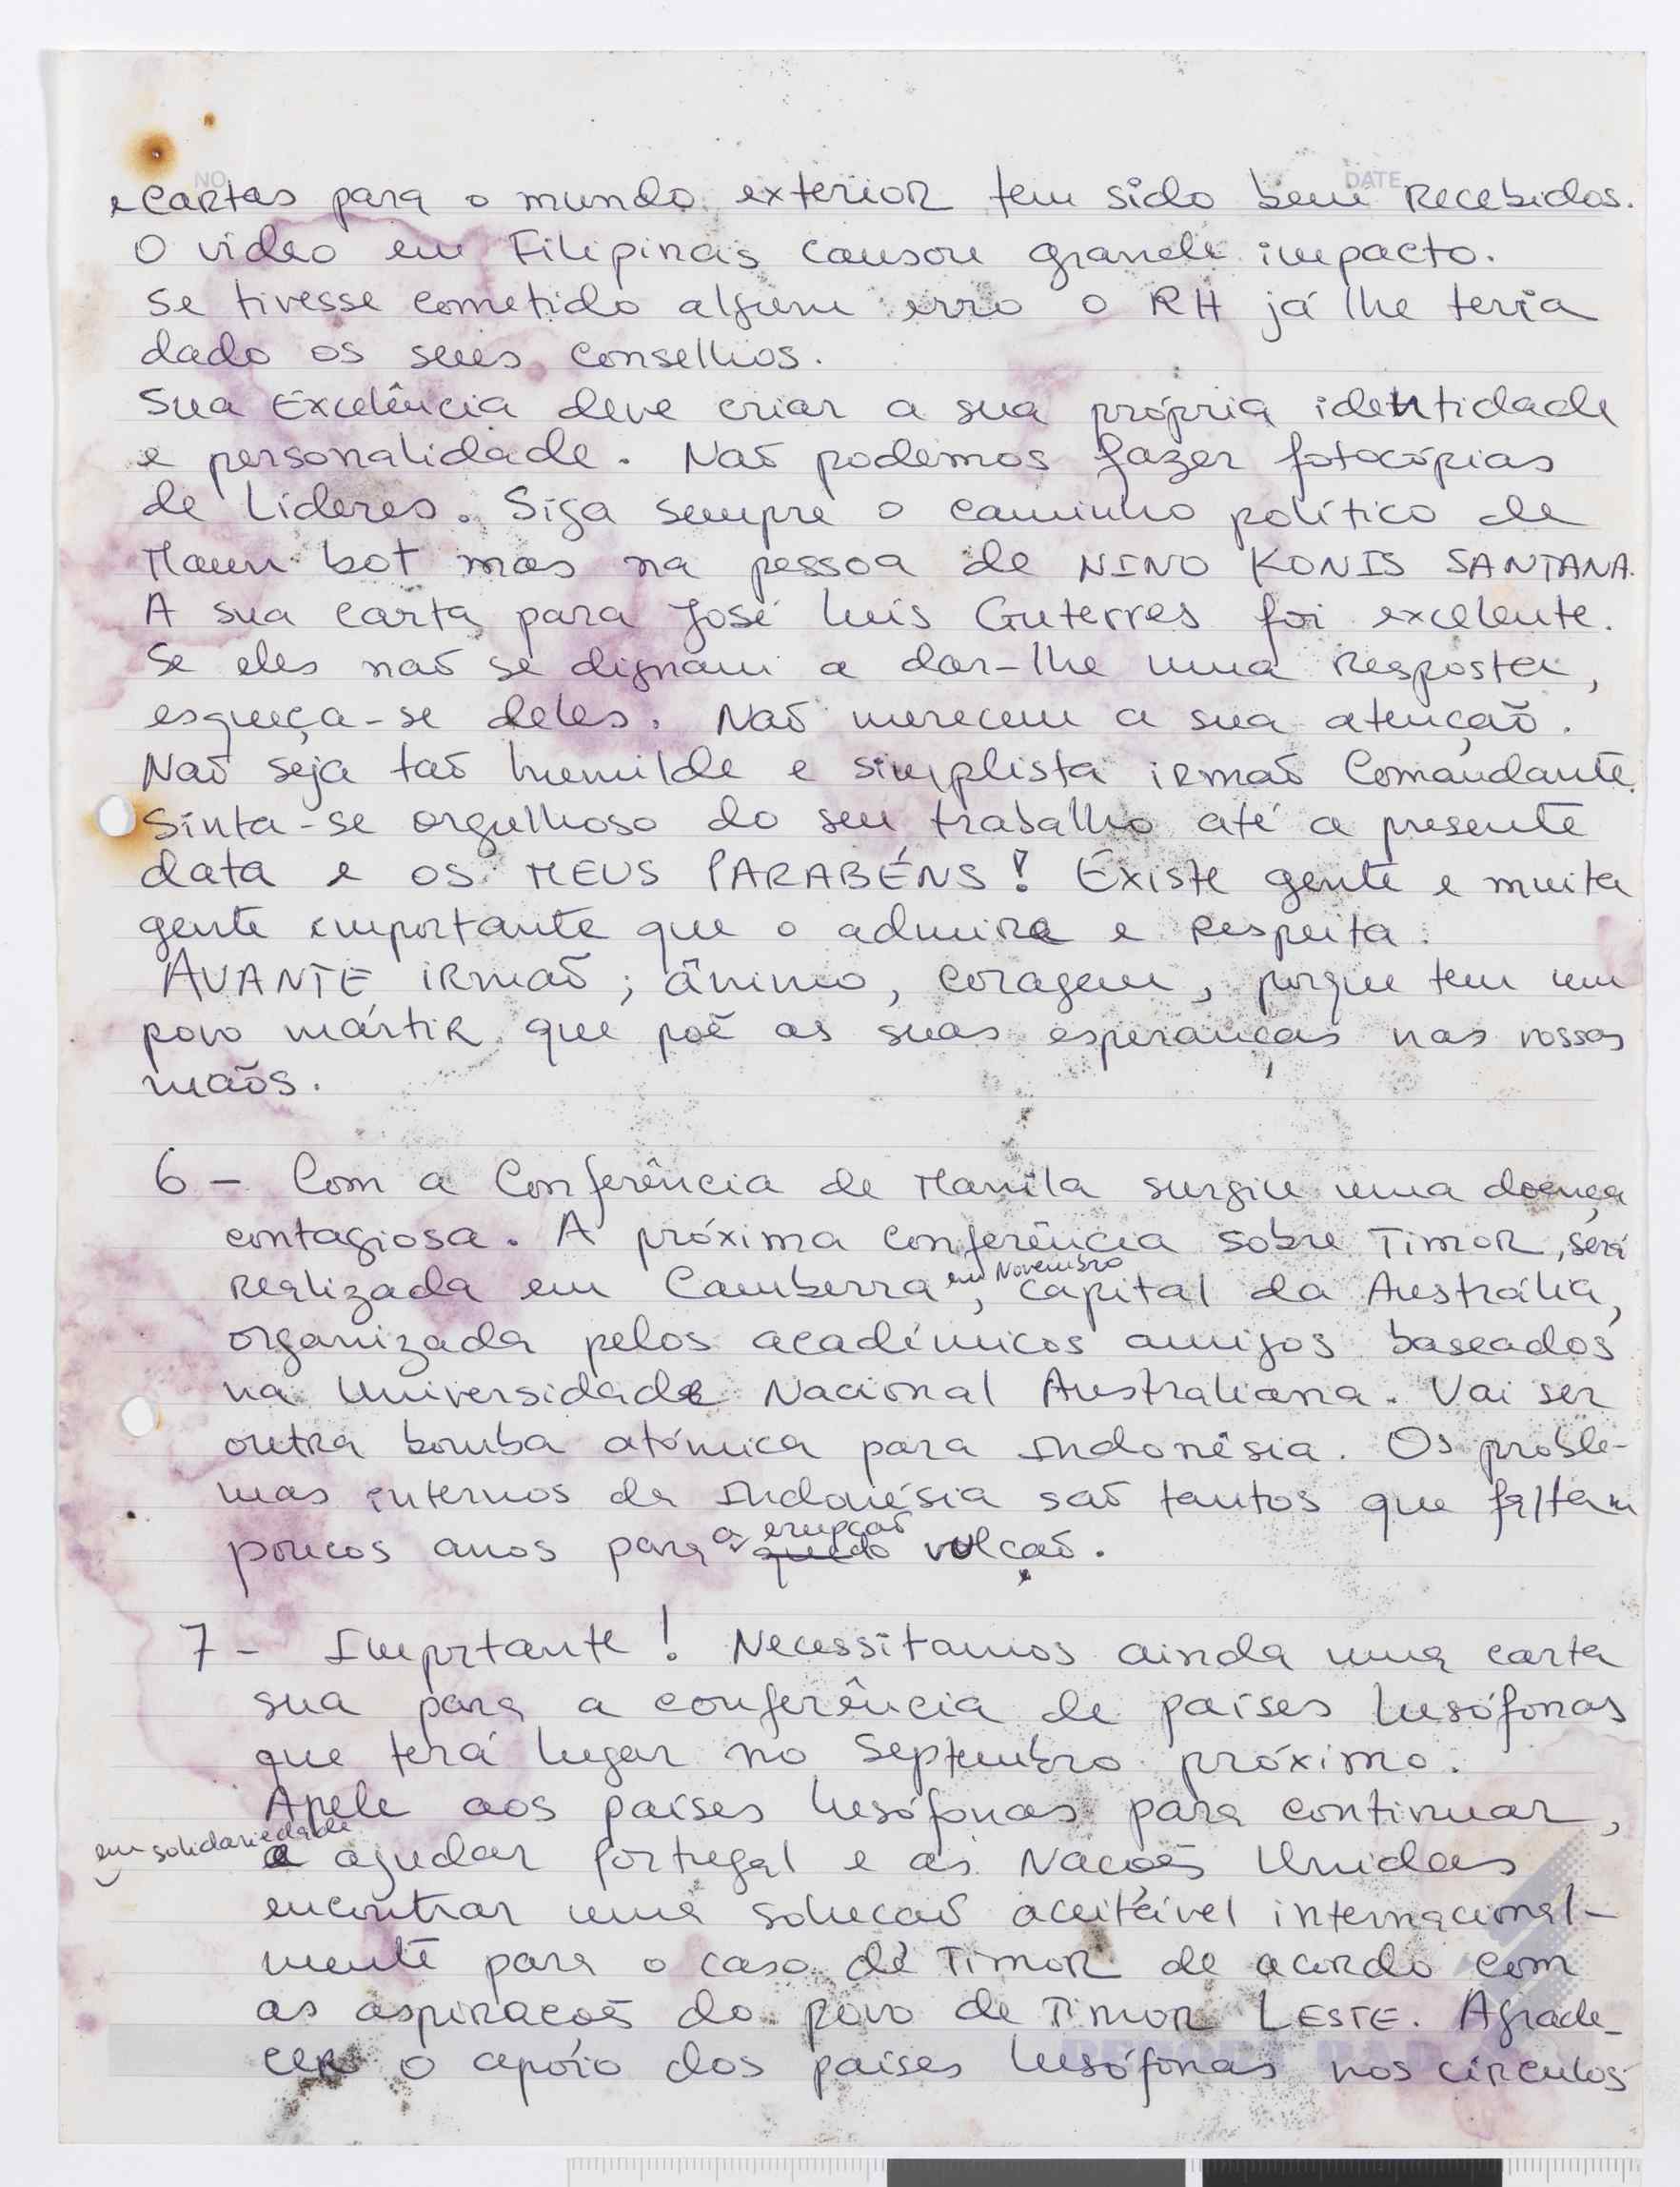 NO DATE
e cartas para o mundo exterior tem sido bem recebidos.
O vídeo em Filipinas causou grande impacto.
Se tivesse cometido algum erro o RH já lhe teria
dado os seus conselhos.
Sua Excelência deve criar a sua própria identidade
e personalidade. Naõ podemos fazer fotocópias
de líderes. Siga sempre o caminho político de
Maun bot mas na pessoa de NINO KONIS SANTANA.
A sua carta para José Luís Guterres foi excelente.
Se eles naõ se dignam a dar-lhe uma resposta,
esqueça-se deles. Naõ merecem a sua atençaõ.
Naõ seja taõ humilde e simplista irmaõ Comandante.
Sinta-se orgulhoso do seu trabalho até a presente
data e OS MEUS PARABÉNS! Existe gente e muita
gente importante que o admira e respeita.
AVANTE irmaõ; ânimo, coragem, porque tem um
povo mártir que poẽ as suas esperanças nas vossas
maõs.
6 - Com a Conferência de Manila surgiu uma doença
contagiosa. A próxima conferência sobre Timor, será
realizada em Camberra em Novembro, capital da Austrália,
organizada pelos académicos amigos baseados
na Universidade Nacional Australiana. Vai ser
outra bomba atómica para Indonésia. Os proble-
mas internos da Indonésia saõ tantos que faltam
poucos anos para a erupçaõ do vulçaõ.
7 - Importante! Necessitamos ainda uma carta
sua para a conferência de países lusófonas
que terá lugar no Septembro próximo.
Apele aos países lusófonas para continuar,
em solidariedade a ajudar Portugal e as Naçoẽs Unidas
encontrar uma solucaõ aceitável internacional-
mente para o caso de Timor de acordo com
as aspiracoẽs do povo de Timor LESTE. Agrade-
cer o apóio dos países lusófonas nos círculos